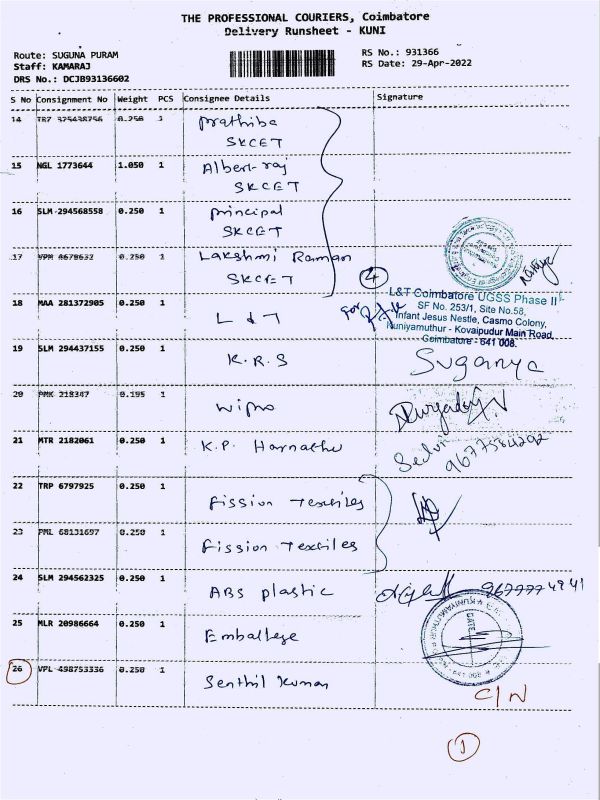 THE PROFESSIONAL COURIERS, Coimbatore
Delivery Runsheet - KUNI
Route: SUGUNA PURAM
Staff: KAMARAJ
DRS No.: DCJB93136602
RS No.: 931366
RS Date: 29-Apr-2022
S No Consignment No Weight PCS Consignee Details Signature
14 0.250 1 Prathiba
SKCET
15 NGL 1773644 1.050 1 Albert-raj
SKCET
16 SLM 294568558 0.250 1 Principal
SKCET
17 VPM 4678632 0.250 1 Lakshmi Raman
SKCET
4
18 MAA 281372905 0.250 1 L & T
L&T Coimbatore UGSS Phase II
SF No. 253/1, Site No.58,
Infant Jesus Nestle, Casmo Colony,
Kuniyamuthur - Kovaipudur Main Road,
Coimbatore - 641 008.
19 SLM 294437155 0.250 1 K.R.S Suganya
20 PMK 218347 0.195 1 Wipro
21 MTR 2182061 0.250 1 K.P. Selvi
22 TRP 6797925 0.250 1 Fission Textiles
23 PML 68131697 0.250 1 Fission Textiles
24 SLM 294562325 0.250 1 ABS plastic
25 MLR 20986664 0.250 1
DATE
26 VPL 498753336 0.250 1 Senthil Kumar
C/N
1